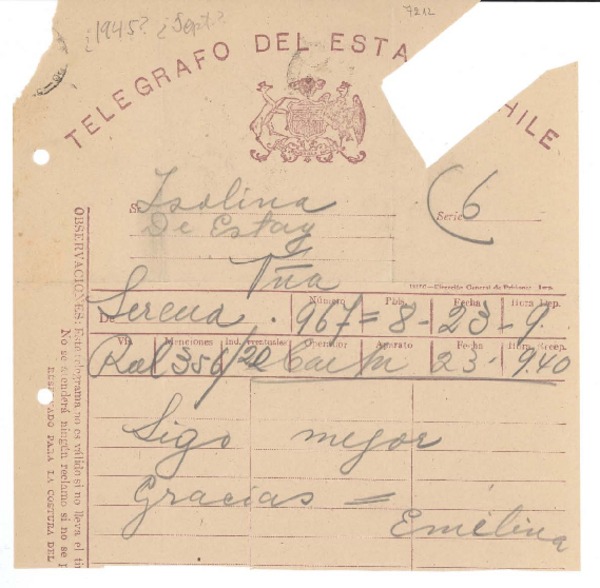 ¿1945? ¿Sept.?
7212
TELEGRAFO DEL ESTA HILE
Sr Isolina
De Estay
Serie 6
Viña
Dirección General de Prisiones Imp.
Número Pals. Fecha Hora Dep.
De Serena. 967 = 8 - 23 - 9.
Vía Menciones Ind. eventuales Operador Aparato Fecha Hora Recep.
356/20 23 - 9.40
Sigo mejor
Gracias =
Emelina
OBSERVACIONES: Este telegrama no es válido si no lleva el tim
No se atenderá ningún reclamo si no se
RESERVADO PARA LA COSTURA DEL